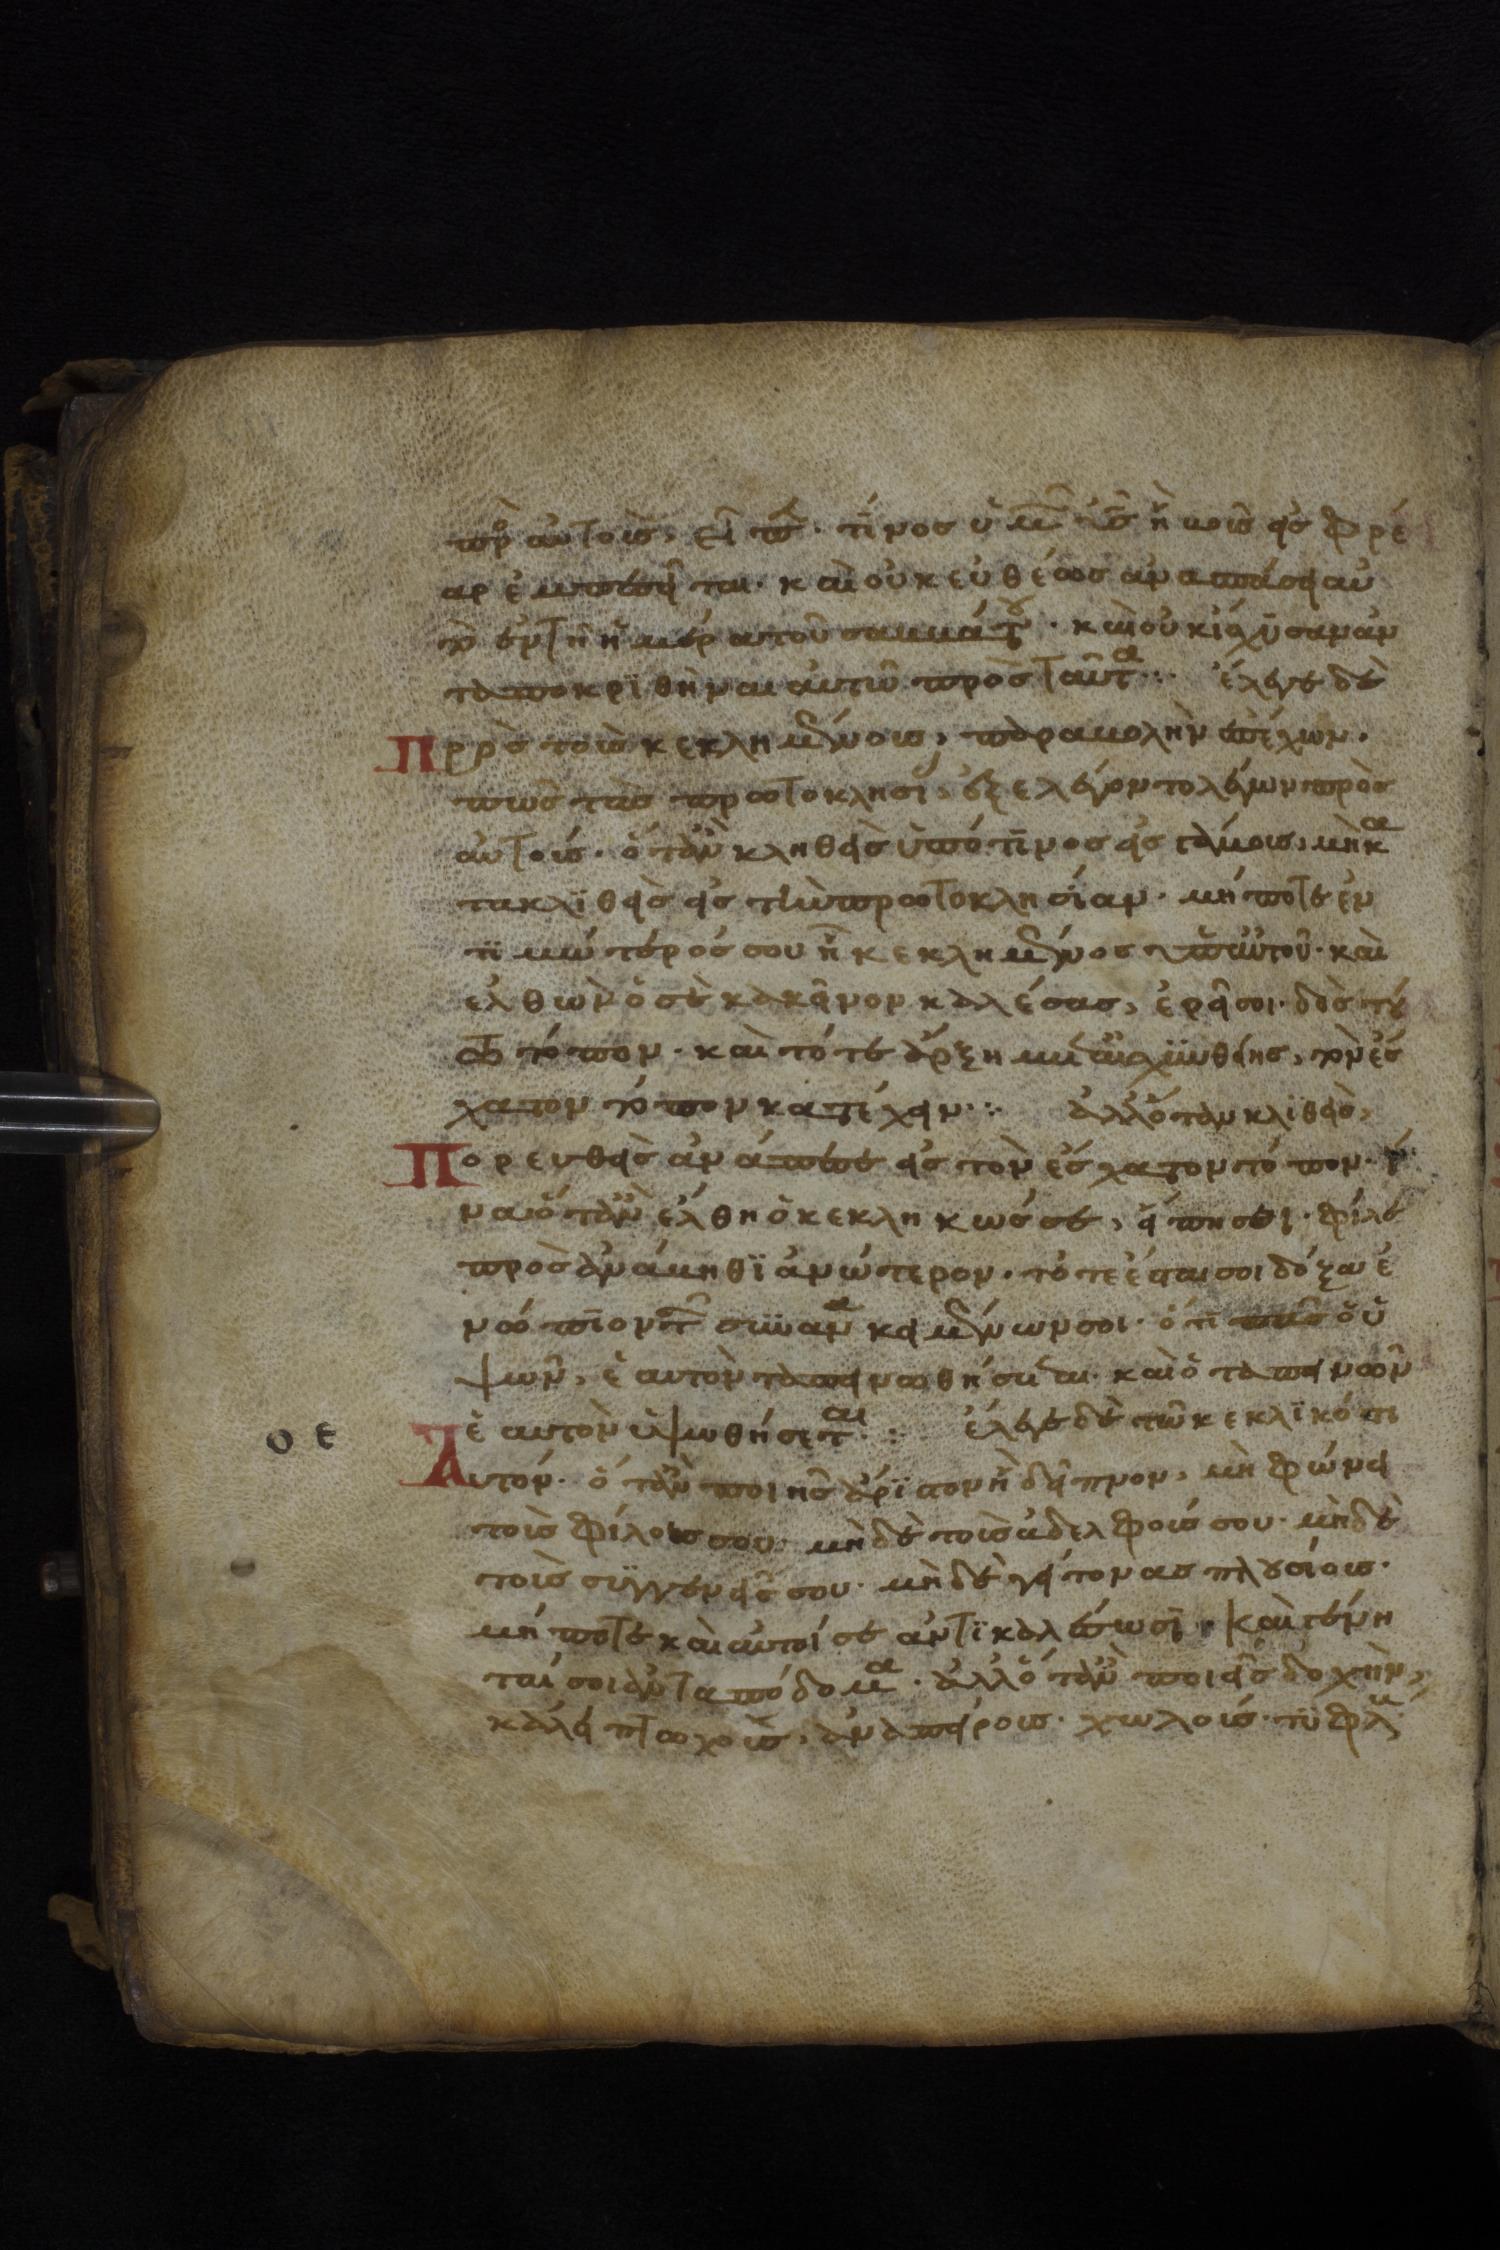 πρὸ αὐτοὺς, εἶπε· τίνος ὑμῶν υἱὸς ἢ βοῦς εἰς φρέ
αρ ἐμπεσεῖται· καὶ οὐκ εὐθέως ἀνασπάσει αὐ
τὸ ἐν τῆ ἡμέρα τοῦ σαββάτου· καὶ οὐκ ἴσχυσαν ἀν
ταποκριθῆναι αὐτῶ πρὸς ταῦτα ⁘ ἔλεγε δὲ
Πρὸς τοὺς κεκλημένους, παραβολὴν ἐπέχων·
πῶς τὰς πρωτοκλησίας ἐξελέγοντο λέγων πρὸς
αὐτούς· ὅταν κληθεὶς ὑπό τινος εἰς γάμους, μὴ κα
τακλιθεὶς εἰς τὴν πρωτοκλησίαν· μήποτε ἐν
τιμώτερός σου ἦ κεκλημένος ὑπ αὐτοῦ· καὶ
ἐλθὼν ὁ σὲ κακεῖνον καλέσας, ἐρεῖ σοι· δὸς τού
τω τόπον· καὶ τότε ἄρξη μετ αἰσχύνης, τὸν ἔσ
χατον τόπον κατέχειν ⁘ ἀλλ ὅταν κλιθεὶς,
Πορευθεὶς ἀνάπεσε εἰς τὸν ἔσχατον τόπον· ἵ
να ὅταν ἔλθη ὁ κεκληκώς σε, εἴπη σοι· φίλε
προσανάβηθι ἀνώτερον· τότε ἔσται σοι δόξα ἐ
νώπιον τῶν συνανακειμένων σοι· ὅτι πᾶς ὁ ὑ
ψῶν, ἑαυτὸν ταπεινωθήσεται· καὶ ὁ ταπεινῶν
ἑαυτὸν ὑψωθήσεται ⁘ ἔλεγε δὲ τῶ κεκλικότι
οε Αυτόν· ὅταν ποιῆς ἄριστον ἢ δεῖπνον, μὴ φώνει
τοὺς φίλους σου· μὴ δὲ τοὺς ἀδελφούς σου· μὴ δὲ
τοὺς συγγενεῖς σου· μὴ δὲ γείτονας πλουσίους·
μήποτε καὶ αὐτοί σε ἀντικαλέσωσι, καὶ γένη
ταί σοι ἀνταπόδομα· ἀλλ ὅταν ποιεῖς δοχὴν,
κάλει πτωχούς, ἀναπείρους· χωλούς· τυφλούς